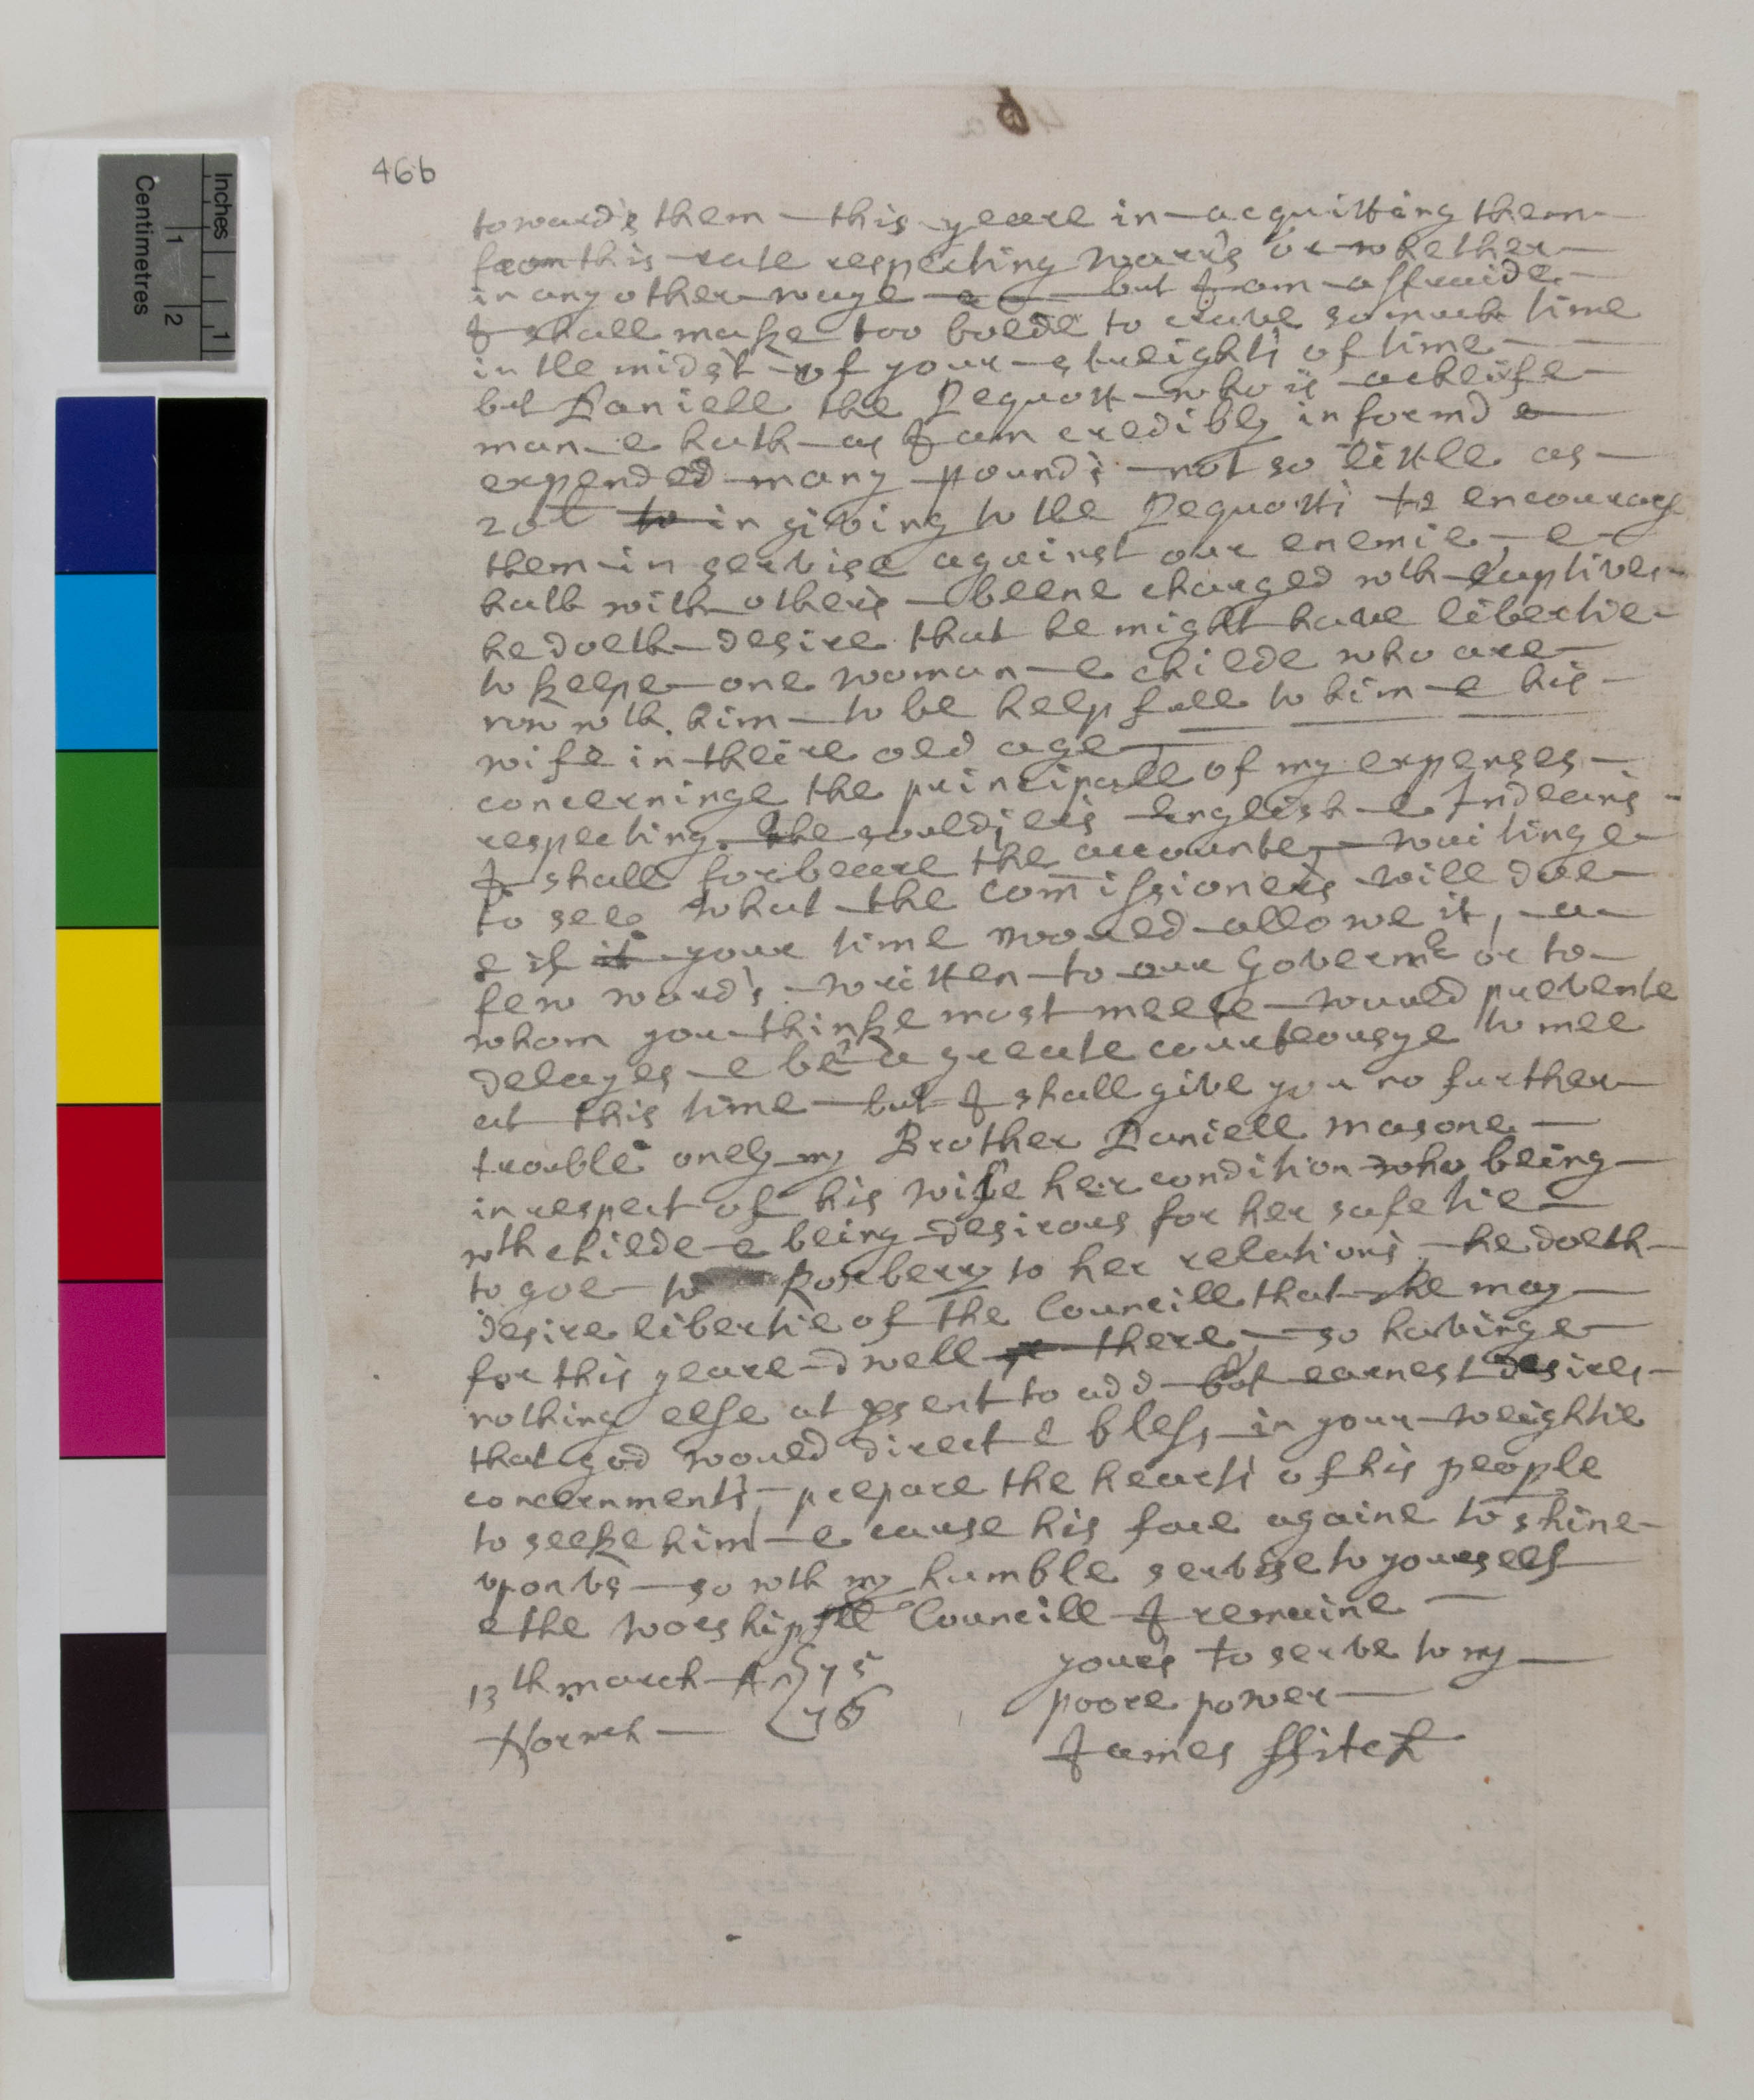 46b
towards them this yeare in acquitting them
from this rate respecting warrs or whether
in any other waye but I am affraide
I shall make too bolde to crave so much time
in the midst of your streights of time
but Daniell the Pequott who is a cheife
man & hath as I am credibly informd
expended many pounds not so little as
20l to in giving to the Pequotts to encourage
them in servise against our enemie, &
hath with others beene charged wth captives
he doeth desire that he might have libertie
to keepe one woman & childe who are
now wth him to be helpfull to him & his
wife in theire old age
concerninge the principall of my expenses
respecting the souldjers english & Indeans
I shall forbeare the accounte, waitinge
to see what the comissioners will doe
& if it your time would allowe it, a
few words written to our Governr or to
whom you thinke most meete would prevente
delayes & be a greate courteousye to mee
at this time but I shall give you no further
trouble onely my Brother Daniell masone
in respect of his wife her condition who being
wth childe & being desirous for her safetie
to goe to Roxberry to her relations, he doeth
desire libertie of the Councill that she may
for this yeare dwell there, so havinge
nothing else at psent to add but earnest desires
that god would direct & bless in your weightie
concernments, prepare the hearts of his people
to seeke him & cause his face againe to shine
upon us so wth my humble servise to yourself
& the worshipfll Councill I remaine
yours to serve to my
poore power
James ffitch
13th march An 75
76
Norwch
Inches
1
Centimetres
1 2